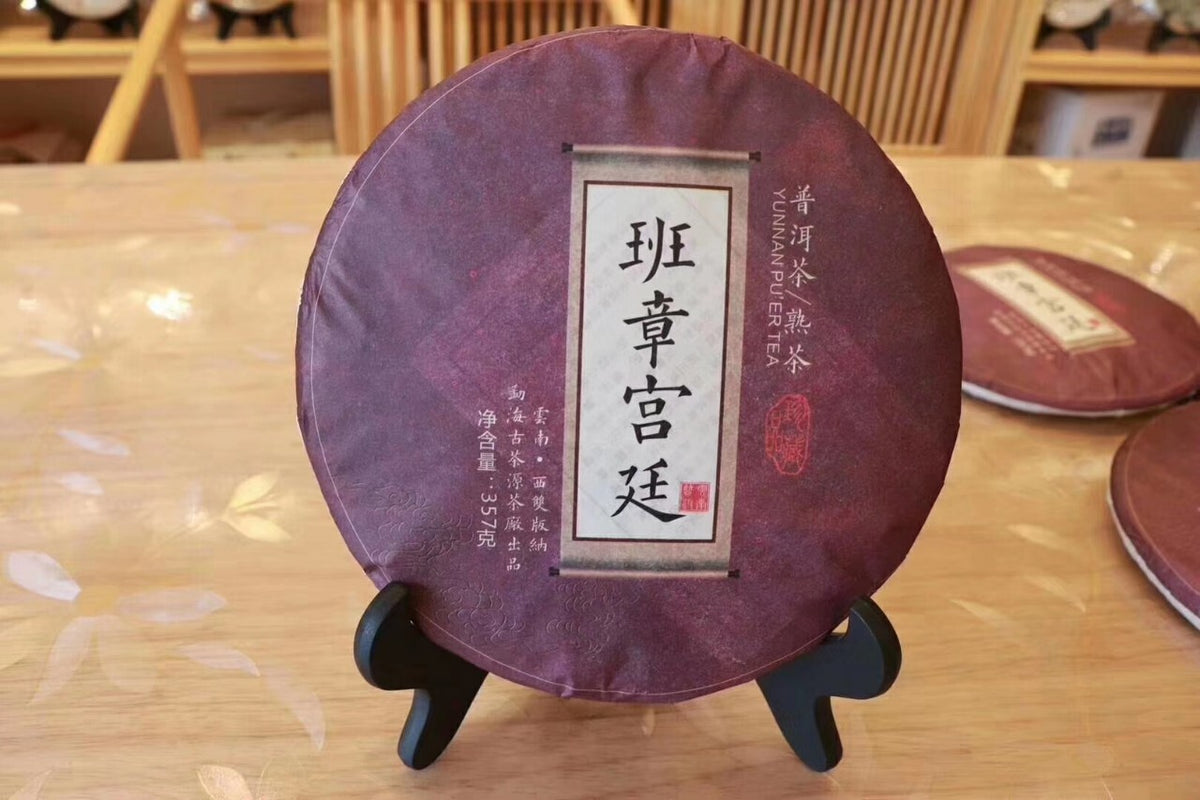 普洱茶/熟茶
YUNNAN PU'ER TEA
珍藏
班章宫廷
雲南·西雙版納
勐海古茶源茶廠出品
净含量:357克